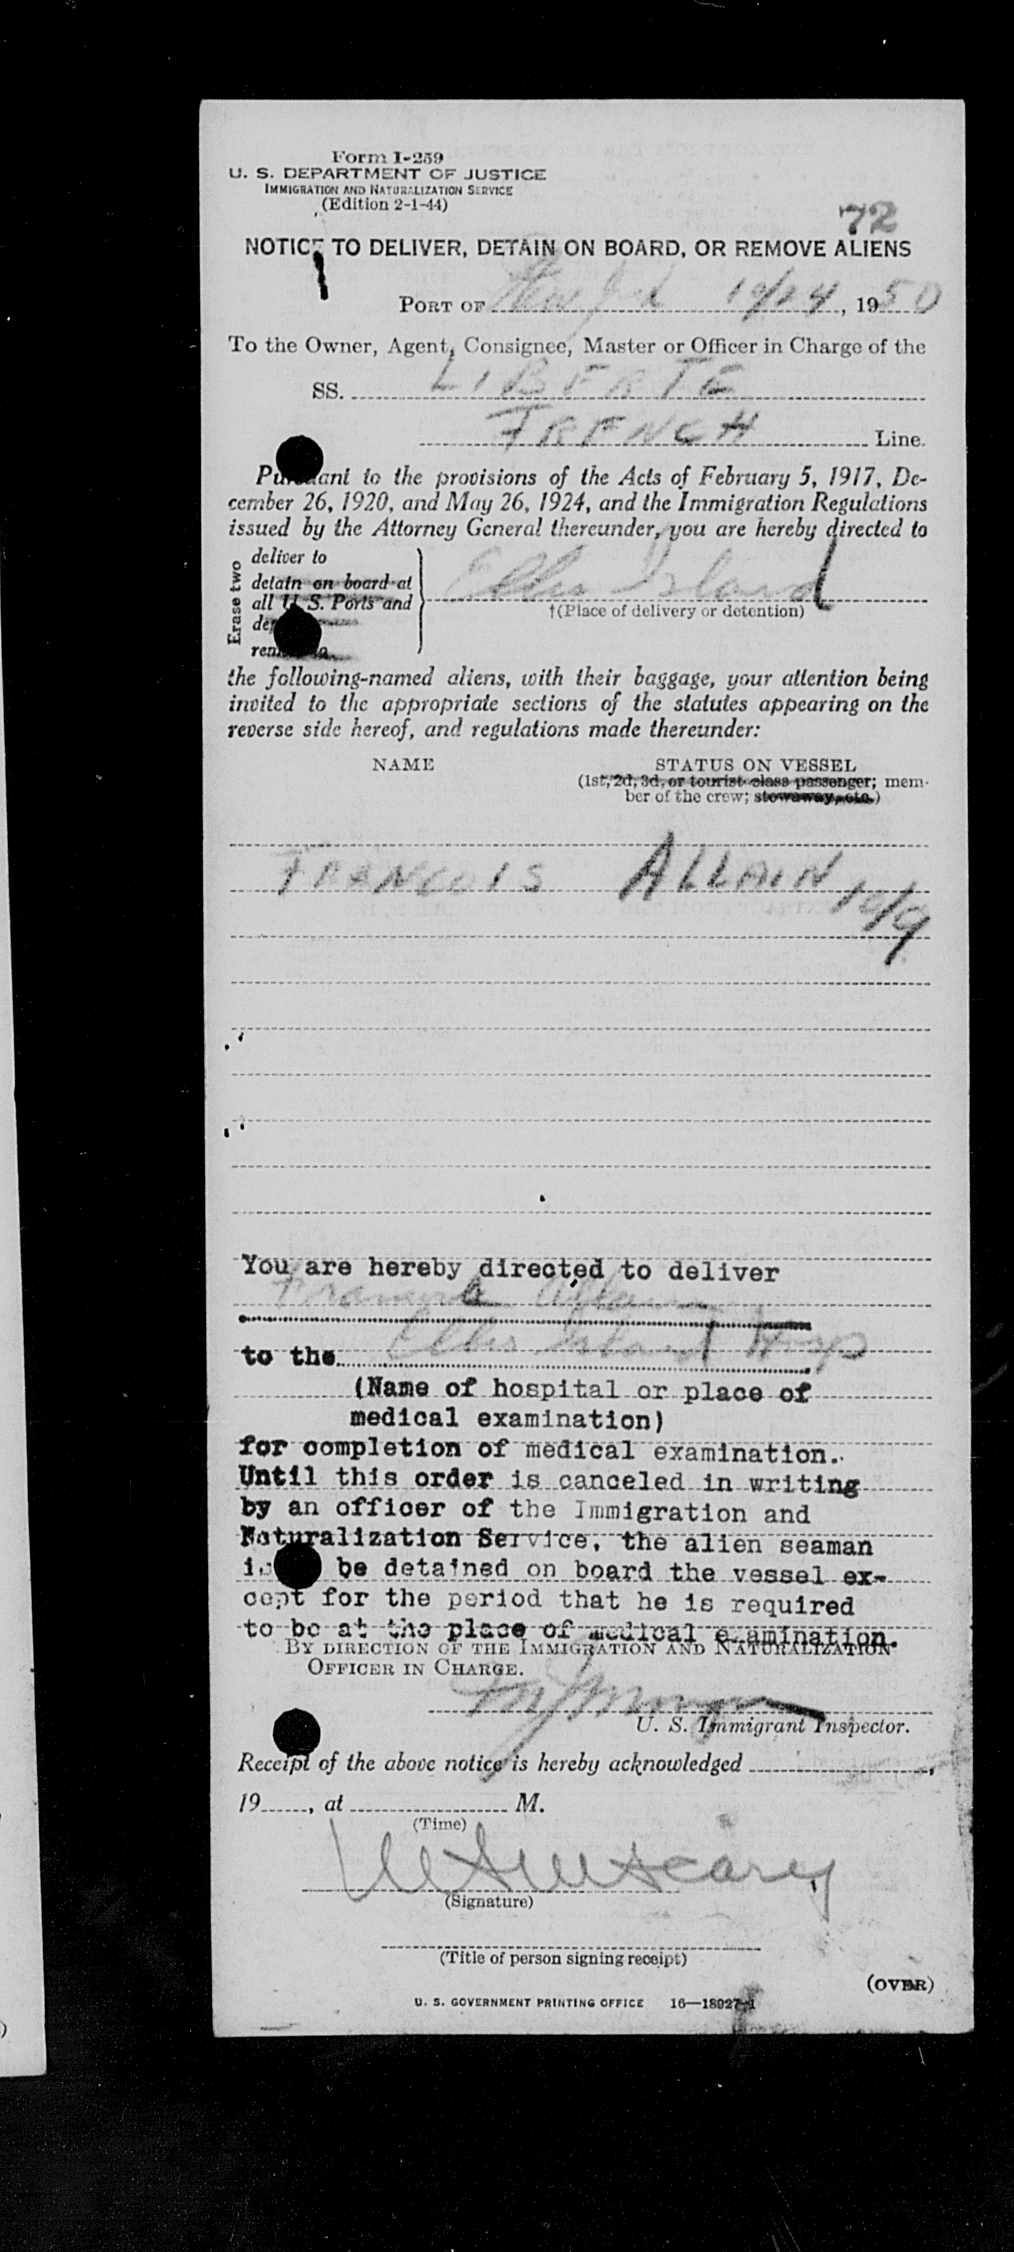 Form I-259
U. S. DEPARTMENT OF JUSTICE
IMMIGRATION AND NATURALIZATION SERVICE
(Edition 2-1-44)
72
NOTICE TO DELIVER, DETAIN ON BOARD, OR REMOVE ALIENS
PORT OF New York 10/24, 1950
To the Owner, Agent, Consignee, Master or Officer in Charge of the
SS. LIBERTE
FRENCH Line.
Pursuant to the provisions of the Acts of February 5, 1917, De-
cember 26, 1920, and May 26, 1924, and the Immigration Regulations
issued by the Attorney General thereunder, you are hereby directed to
Erase two
deliver to
detain on board at
all U. S. Ports and
Ellis Island
†(Place of delivery or detention)
the following-named aliens, with their baggage, your attention being
invited to the appropriate sections of the statutes appearing on the
reverse side hereof, and regulations made thereunder:
NAME STATUS ON VESSEL
(1st, 2d, 3d, or tourist class passenger; mem-
ber of the crew; stowaway, etc.)
FRANCOIS ALLAIN 10/9
You are hereby directed to deliver
Allain
to the Ellis Island Hosp
(Name of hospital or place of
medical examination)
for completion of medical examination.
Until this order is canceled in writing
by an officer of the Immigration and
Naturalization Service, the alien seaman
be detained on board the vessel ex-
cept for the period that he is required
to be at the place of medical examination.
BY DIRECTION OF THE IMMIGRATION AND NATURALIZATION
OFFICER IN CHARGE.
U. S. Immigrant Inspector.
Receipt of the above notice is hereby acknowledged ,
19 , at M.
(Time)
(Signature)
(Title of person signing receipt)
(OVER)
U. S. GOVERNMENT PRINTING OFFICE 16—18927-1